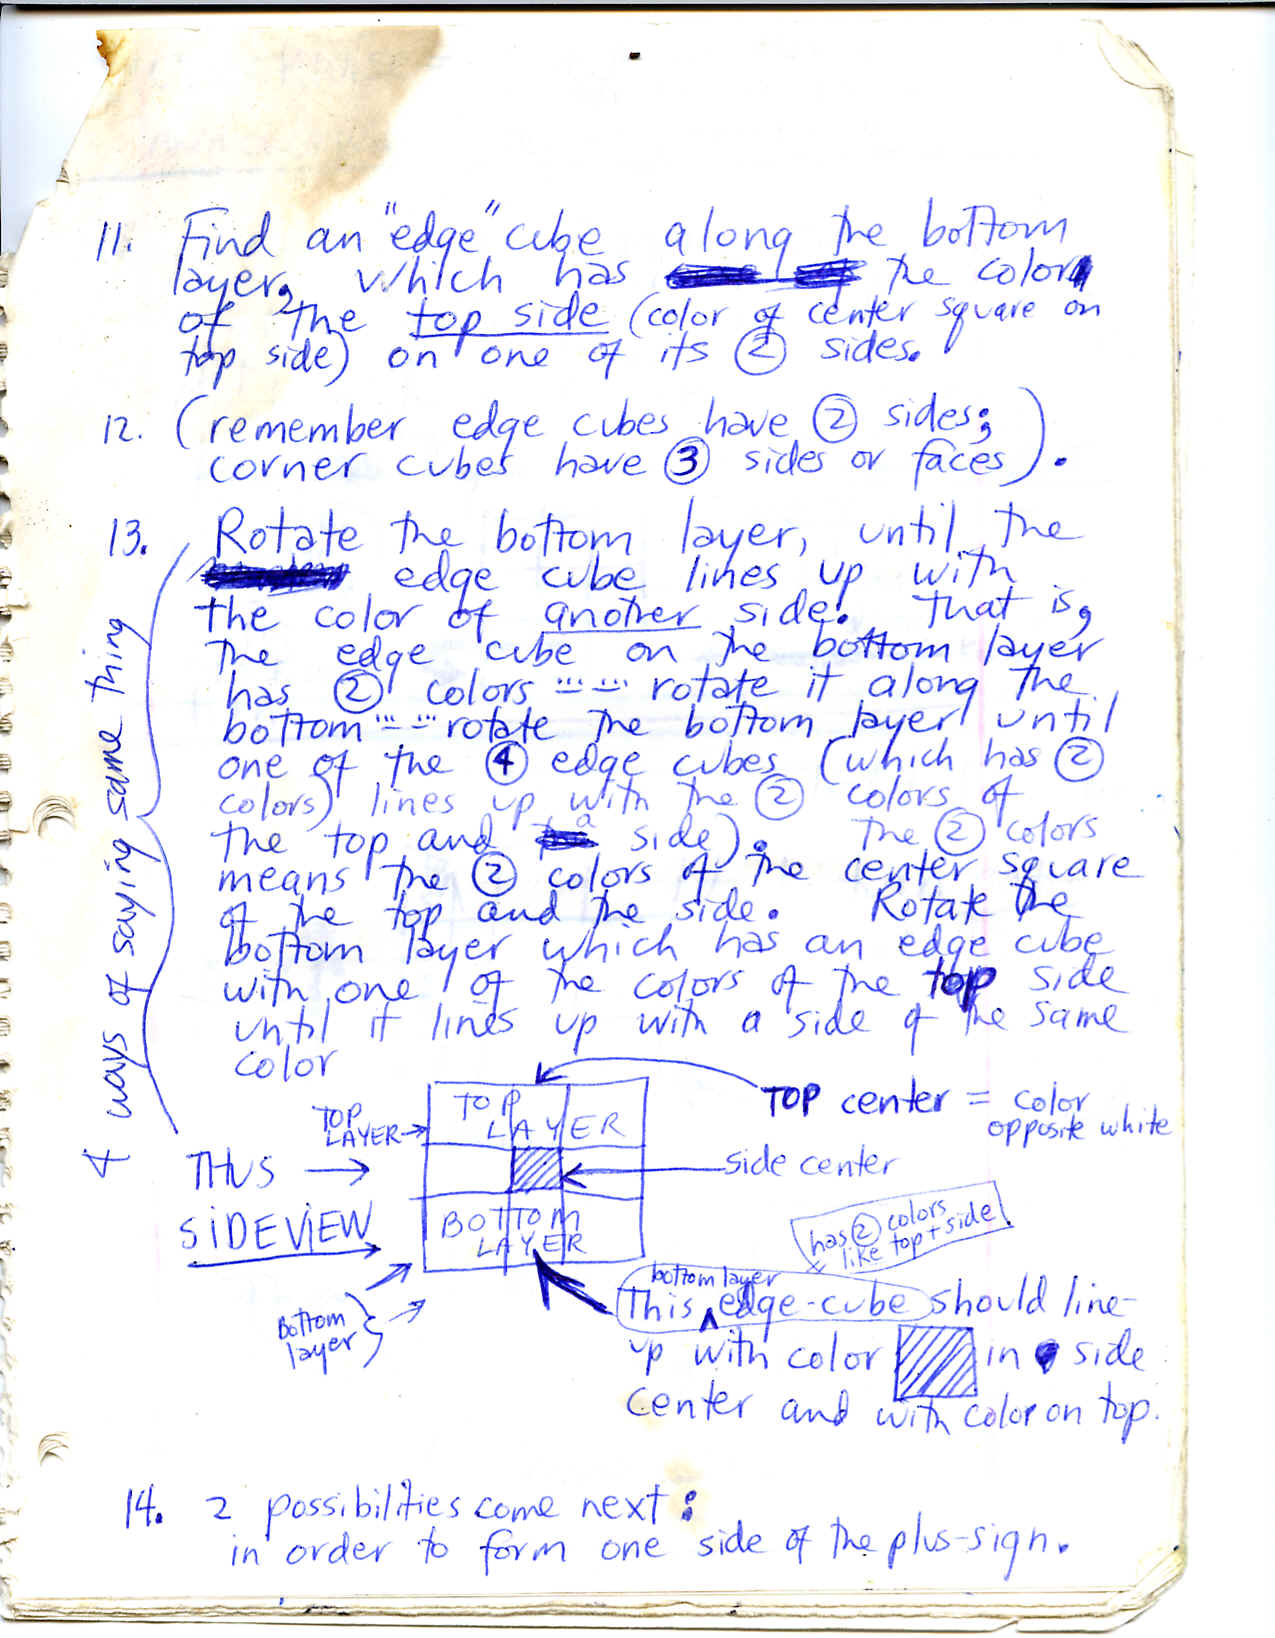 11. Find an "edge" cube along the bottom
layer, which has the color
of the top side (color of center square on
top side) on one of its 2 sides.
12. (remember edge cubes have 2 sides;
corner cubes have 3 sides or faces).
13. Rotate the bottom layer, until the
edge cube lines up with
the color of another side. That is,
the edge cube on the bottom layer
has 2 colors -- rotate it along the
bottom -- rotate the bottom layer until
one of the 4 edge cubes (which has 2
colors) lines up with the 2 colors of
the top and a side). The 2 colors
means the 2 colors of the center square
of the top and the side. Rotate the
bottom layer which has an edge cube
with one of the colors of the top side
until it lines up with a side of the same
color
4 ways of saying same thing
TOP LAYER
TOP
LAYER →
TOP center = color
opposite white
THUS →
side center
SIDEVIEW
BOTTOM
LAYER
has 2 colors
like top + side
Bottom
layer
bottom layer
This edge-cube should line-
up with color in side
center and with color on top.
14. 2 possibilities come next:
in order to form one side of the plus-sign.